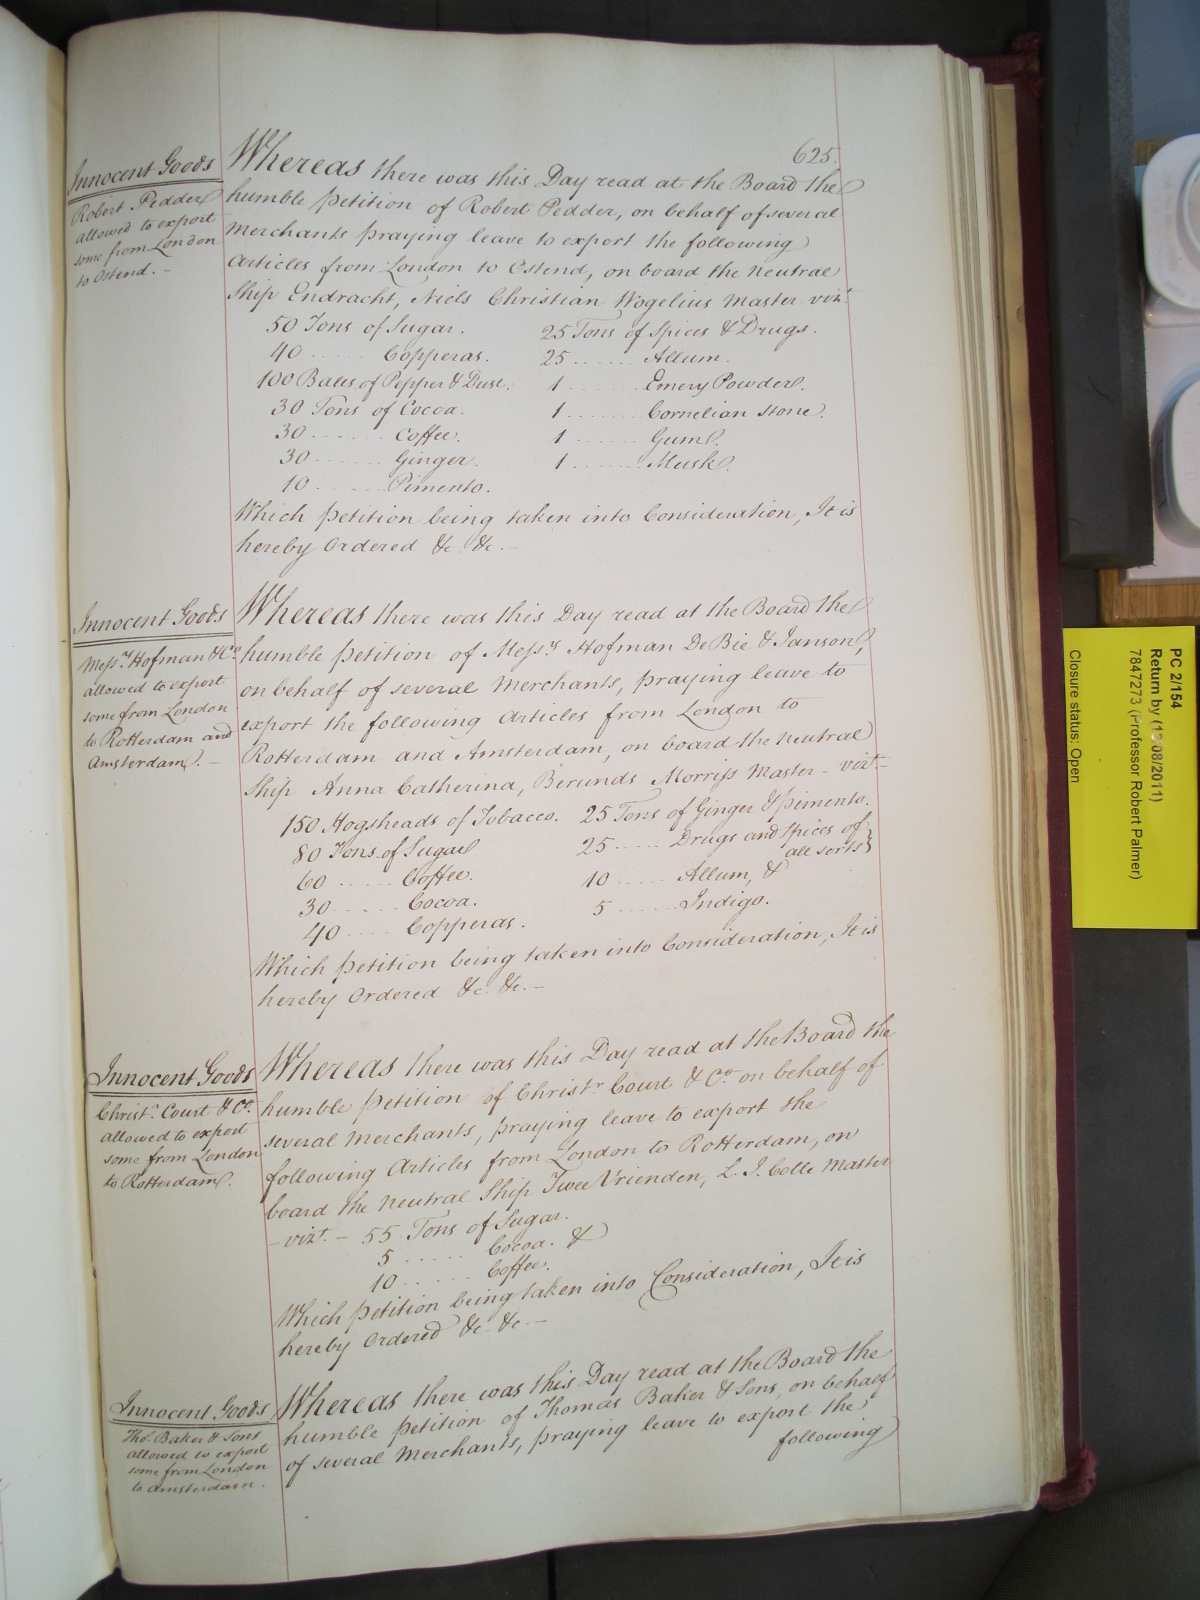 625.
Innocent Goods
Robert Pedder
allowed to export
some from London
to Ostend. -
Whereas there was this Day read at the Board the
humble Petition of Robert Pedder, on behalf of several
Merchants praying leave to export the following
Articles from London to Ostend, on board the neutral
Ship Endracht, Niels Christian Wogelius Master vizt.
50 Tons of Sugar. 25 Tons of Spices & Drugs.
40 ...... Copperas. 25 ...... Allum.
100 Bales of Pepper & Dust. 1 ...... Emery Powder.
30 Tons of Cocoa. 1 ...... Cornelian Stone.
30 ...... Coffee. 1 ...... Gum.
30 ...... Ginger. 1 ...... Musk.
10 ...... Pimento.
Which Petition being taken into Consideration, It is
hereby Ordered &c. &c. -
Innocent Goods
Messrs. Hofman & Co.
allowed to export
some from London
to Rotterdam and
Amsterdam. -
Whereas there was this Day read at the Board the
humble Petition of Messrs. Hofman De Bie & Janson,
on behalf of several Merchants, praying leave to
export the following Articles from London to
Rotterdam and Amsterdam, on board the neutral
Ship Anna Catherina, Berunds Morriss Master - vizt. -
150 Hogsheads of Tobacco. 25 Tons of Ginger & Pimento.
80 Tons of Sugar 25 ...... Drugs and Spices of
all sorts
60 ...... Coffee. 10 ...... Allum, &
30 ...... Cocoa. 5 ...... Indigo.
40 ...... Copperas.
Which Petition being taken into Consideration, It is
hereby Ordered &c. &c. -
Innocent Goods
Christr. Court & Co.
allowed to export
some from London
to Rotterdam.
Whereas there was this Day read at the Board the
humble Petition of Christr. Court & Co. on behalf of
several Merchants, praying leave to export the
following Articles from London to Rotterdam, on
board the neutral Ship Twee Vrienden, L. J. Colle Master
- vizt. - 55 Tons of Sugar.
5 ...... Cocoa. &
10 ...... Coffee.
Which Petition being taken into Consideration, It is
hereby Ordered &c. &c. -
Innocent Goods
Thos. Baker & Sons
allowed to export
some from London
to Amsterdam.
Whereas there was this Day read at the Board the
humble Petition of Thomas Baker & Sons, on behalf
of several Merchants, praying leave to export the
following
PC 2/154
Return by (13/08/2011)
7847273 (Professor Robert Palmer)
Closure status: Open